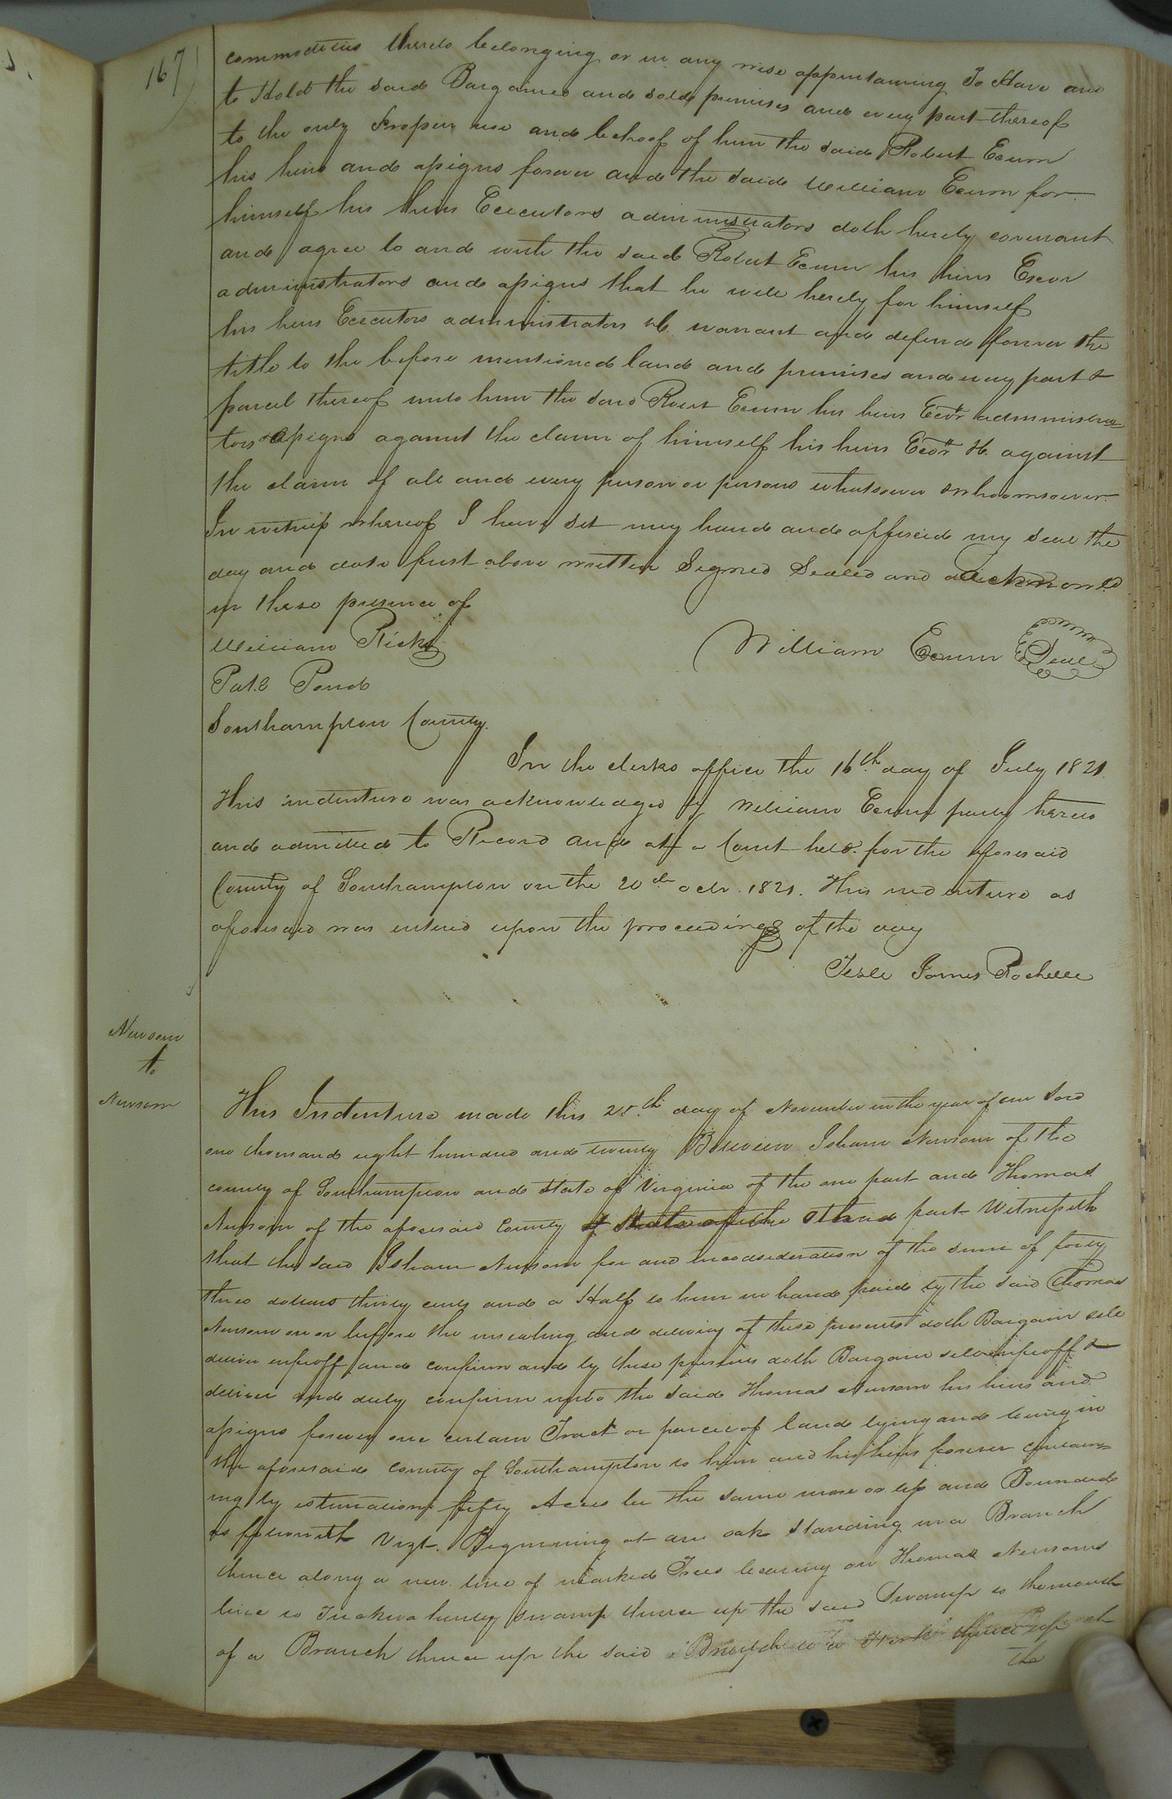 167)
commodities thereto belonging or in any wise appertaining To Have and
to Hold the said Bargained and sold premises and every part thereof
to the only proper use and behoof of him the said Robert Ecum
his heirs and assigns forever and the said William Ecum for
himself his heirs Executors administrators doth hereby covenant
and agree to and with the said Robert Ecum his heirs Execr
administrators and assigns that he will hereby for himself
his heirs Executors administrators &c. warrant and defend forever the
title to the before mentioned land and premises and every part &
parcel thereof unto him the said Robert Ecum his heirs Exors administra
tors & assigns against the claim of himself his heirs Exors &c against
the claim of all and every person or persons whatsoever whomsoever
In witness whereof I have set my hand and affixed my seal the
day and date first above written Signed Sealed and acknowld
in these presence of
William Ricks
William Ecum Seal
Pate Pond
Southampton County.
In the clerks office the 16th day of July 1821
This indenture was acknowledged by William Ecum party hereto
and admitted to Record and at a Court held for the aforesaid
County of Southampton on the 20th octr. 1821. This indenture as
aforesaid was entered upon the proceedings of the day
Teste James Rochelle
Newsom
to
Newsom
This Indenture made this 25th day of November in the year of our Lord
one thousand eight hundred and twenty Between Isham Newsom of the
county of Southampton and state of Virginia of the one part and Thomas
Newsom of the aforesaid County & State of the Other part Witnesseth
that the said Isham Newsom for and in consideration of the sum of forty
three dollars thirty cents and a Half to him in hand paid by the said Thomas
Newsom on or before the unsealing and delivery of these presents doth Bargain sell
deliver infeoff and confirm and by these presents doth Bargain sell infeoff &
deliver and duly confirm unto the said Thomas Newsom his heirs and
assigns forever one certain Tract or parcel of land lying and being in
the aforesaid county of Southampton to him and his heirs forever contain
ing by estimation fifty Acres be the same more or less and Bounded
as followeth Vizt. Beginning at an oak standing in a Branch
thence along a new line of marked Trees bearing on Thomas Newsoms
line to swamp thence up the said Swamp to the mouth
of a Branch thence up the said Branch to a
the